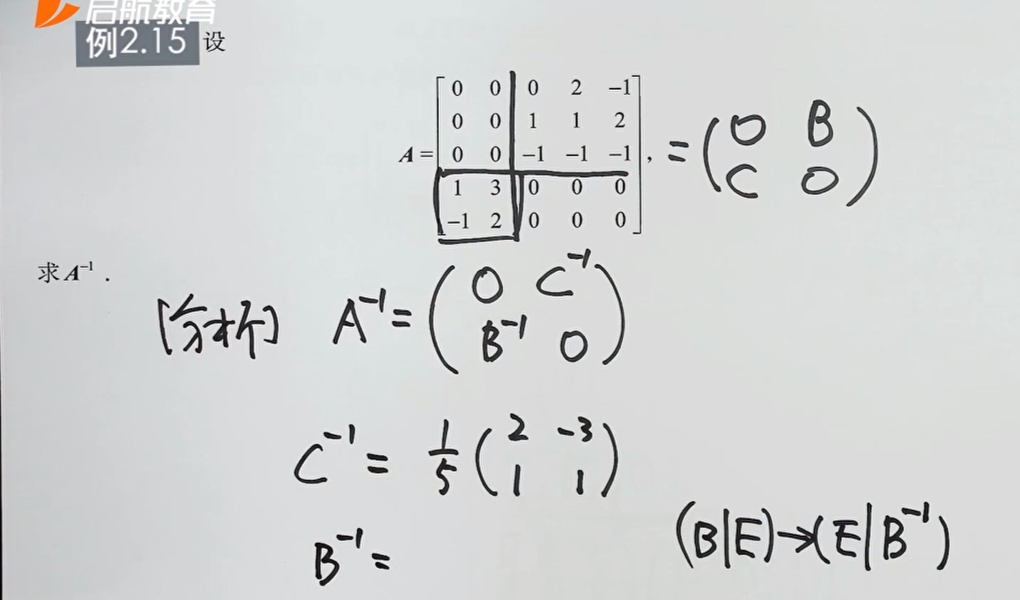 启航教育
例2.15 设
A = [ 0 0 0 2 −1
0 0 1 1 2
0 0 −1 −1 −1
1 3 0 0 0
−1 2 0 0 0 ], = ( O B
C O )
求 A⁻¹ .
[分析] A⁻¹ = ( O C⁻¹
B⁻¹ O )
C⁻¹ = 1/5 ( 2 -3
1 1 )
B⁻¹ = (B|E)→(E|B⁻¹)